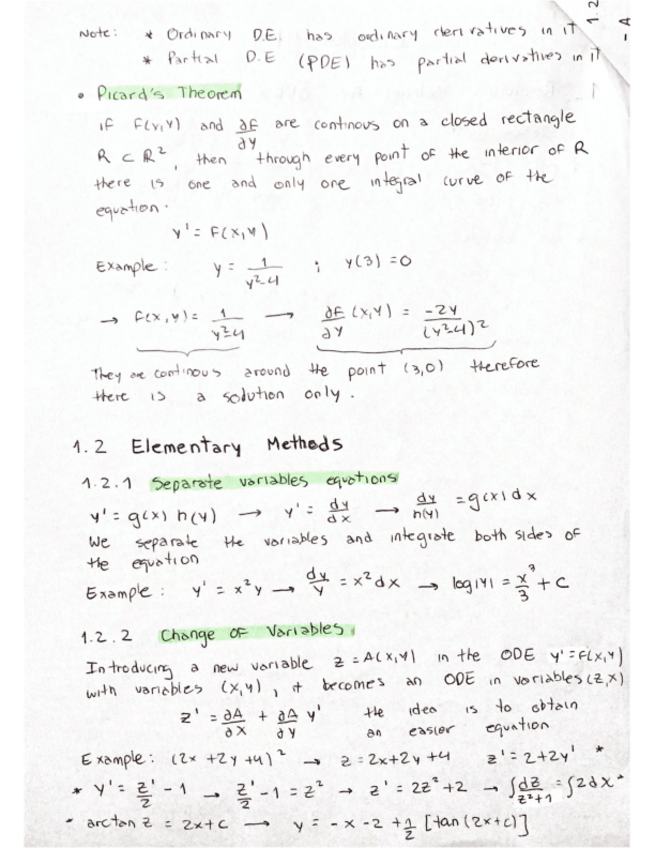 Note: * Ordinary D.E. has ordinary derivatives in it
* Partial D.E (PDE) has partial derivatives in it
1.2
- A
• Picard's Theorem
If F(x,y) and ∂F/∂y are continous on a closed rectangle
R ⊂ R², then through every point of the interior of R
there is one and only one integral curve of the
equation.
y' = F(x,y)
Example: y = 1/(y²-4) ; y(3) = 0
→ F(x,y) = 1/(y²-4) → ∂F/∂y (x,y) = -2y/(y²-4)²
They are continous around the point (3,0) therefore
there is a solution only.
1.2 Elementary Methods
1.2.1 Separate variables equations
y' = g(x) h(y) → y' = dy/dx → dy/h(y) = g(x) dx
We separate the variables and integrate both sides of
the equation
Example: y' = x²y → dy/y = x² dx → log|y| = x³/3 + C
1.2.2 Change of Variables
Introducing a new variable z = A(x,y) in the ODE y' = F(x,y)
with variables (x,y), it becomes an ODE in variables (z,x)
z' = ∂A/∂x + ∂A/∂y y' the idea is to obtain
an easier equation
Example: (2x + 2y + 4)² → z = 2x + 2y + 4 z' = 2 + 2y' *
* y' = z'/2 - 1 → z'/2 - 1 = z² → z' = 2z² + 2 → ∫dz/(z²+1) = ∫2dx *
* arctan z = 2x + c → y = -x - 2 + 1/2 [tan(2x+c)]